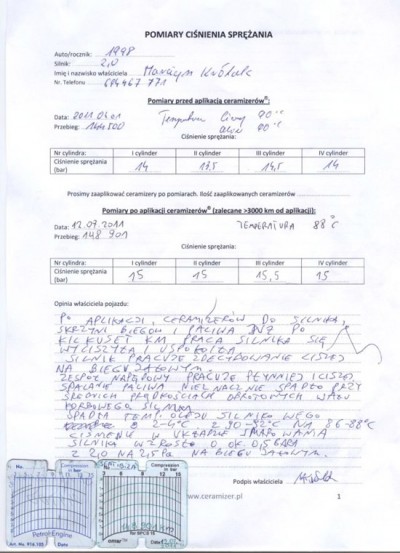 POMIARY CIŚNIENIA SPRĘŻANIA
Auto/rocznik: 1998
Silnik: 2,0
Imię i nazwisko właściciela Marcin
Nr. Telefonu 771
Pomiary przed aplikacją ceramizerów®:
Data: 2011.04.01 90 °C
Przebieg: 144.500 90 °C
Ciśnienie sprężania:
Nr cylindra: I cylinder II cylinder III cylinder IV cylinder
Ciśnienie sprężania (bar) 14 13,5 14,5 14
Prosimy zaaplikować ceramizery po pomiarach. Ilość zaaplikowanych ceramizerów
Pomiary po aplikacji ceramizerów® (zalecane >3000 km od aplikacji):
Data: 12.07.2011 TEMPERATURA 88°C
Przebieg: 148.901
Ciśnienie sprężania:
Nr cylindra: I cylinder II cylinder III cylinder IV cylinder
Ciśnienie sprężania (bar) 15 15 15,5 15
Opinia właściciela pojazdu:
PO APLIKACJI CERAMIZERÓW DO SILNIKA,
SKRZYNI BIEGÓW I PALIWA JUŻ PO
KILKUSET KM PRACA SILNIKA SIĘ
WYCISZYŁA I USPOKOIŁA
SILNIK PRACUJE ZDECYDOWANIE CISZEJ
NA BIEGU JAŁOWYM.
ZESPÓŁ NAPĘDOWY PRACUJE PŁYNNIEJ I CISZEJ
SPALANIE PALIWA NIEZNACZNIE SPADŁO PRZY
ŚREDNICH PRĘDKOŚCIACH OBROTOWYCH WAŁU
KORBOWEGO SILNIKA
SPADŁA TEMP. OLEJU SILNIKOWEGO
O 2-4°C z 90-92°C NA 86-88°C
CIŚNIENIE W UKŁADZIE SMAROWANIA
SILNIKA WZROSŁO O OK. 0,5 BARA
Z 2,0 NA 2,5 NA BIEGU JAŁOWYM.
Podpis właściciela
www.ceramizer.pl 1
Petrol Engine
Art. No. 916.102 Date
Compression in bar